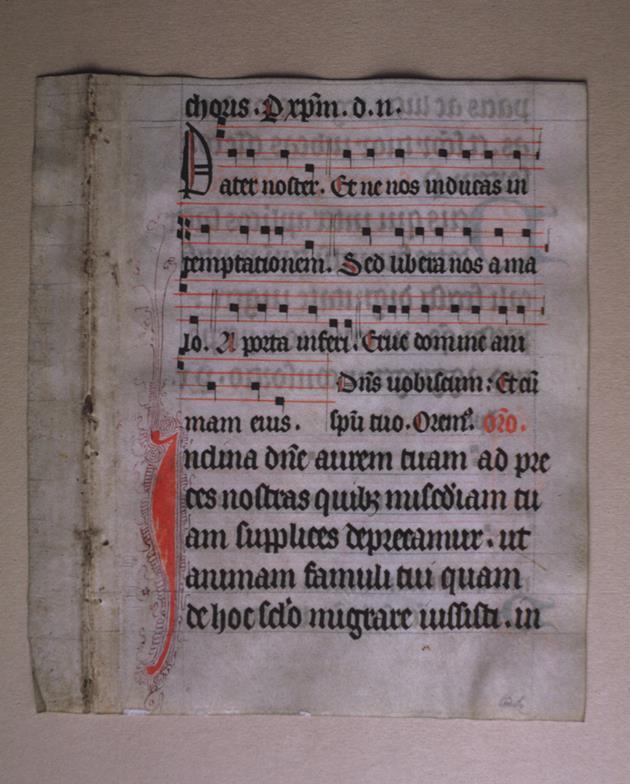 chorus. P xp̄m. d. n.
Pater noster. Et ne nos inducas in
temptationem. Sed libera nos a ma
lo. A porta inferi. Erue domine ani
Dn̄s uobiscum: Et cū
mam eius. sp̄u tuo. Orem᷒. or̄o.
Inclina dn̄e aurem tuam ad pre
ces nostras quibꝫ mis̄ediam tu
am supplices deprecamur. ut
animam famuli tui quam
de hoc sc̄lo migrare iussisti. in